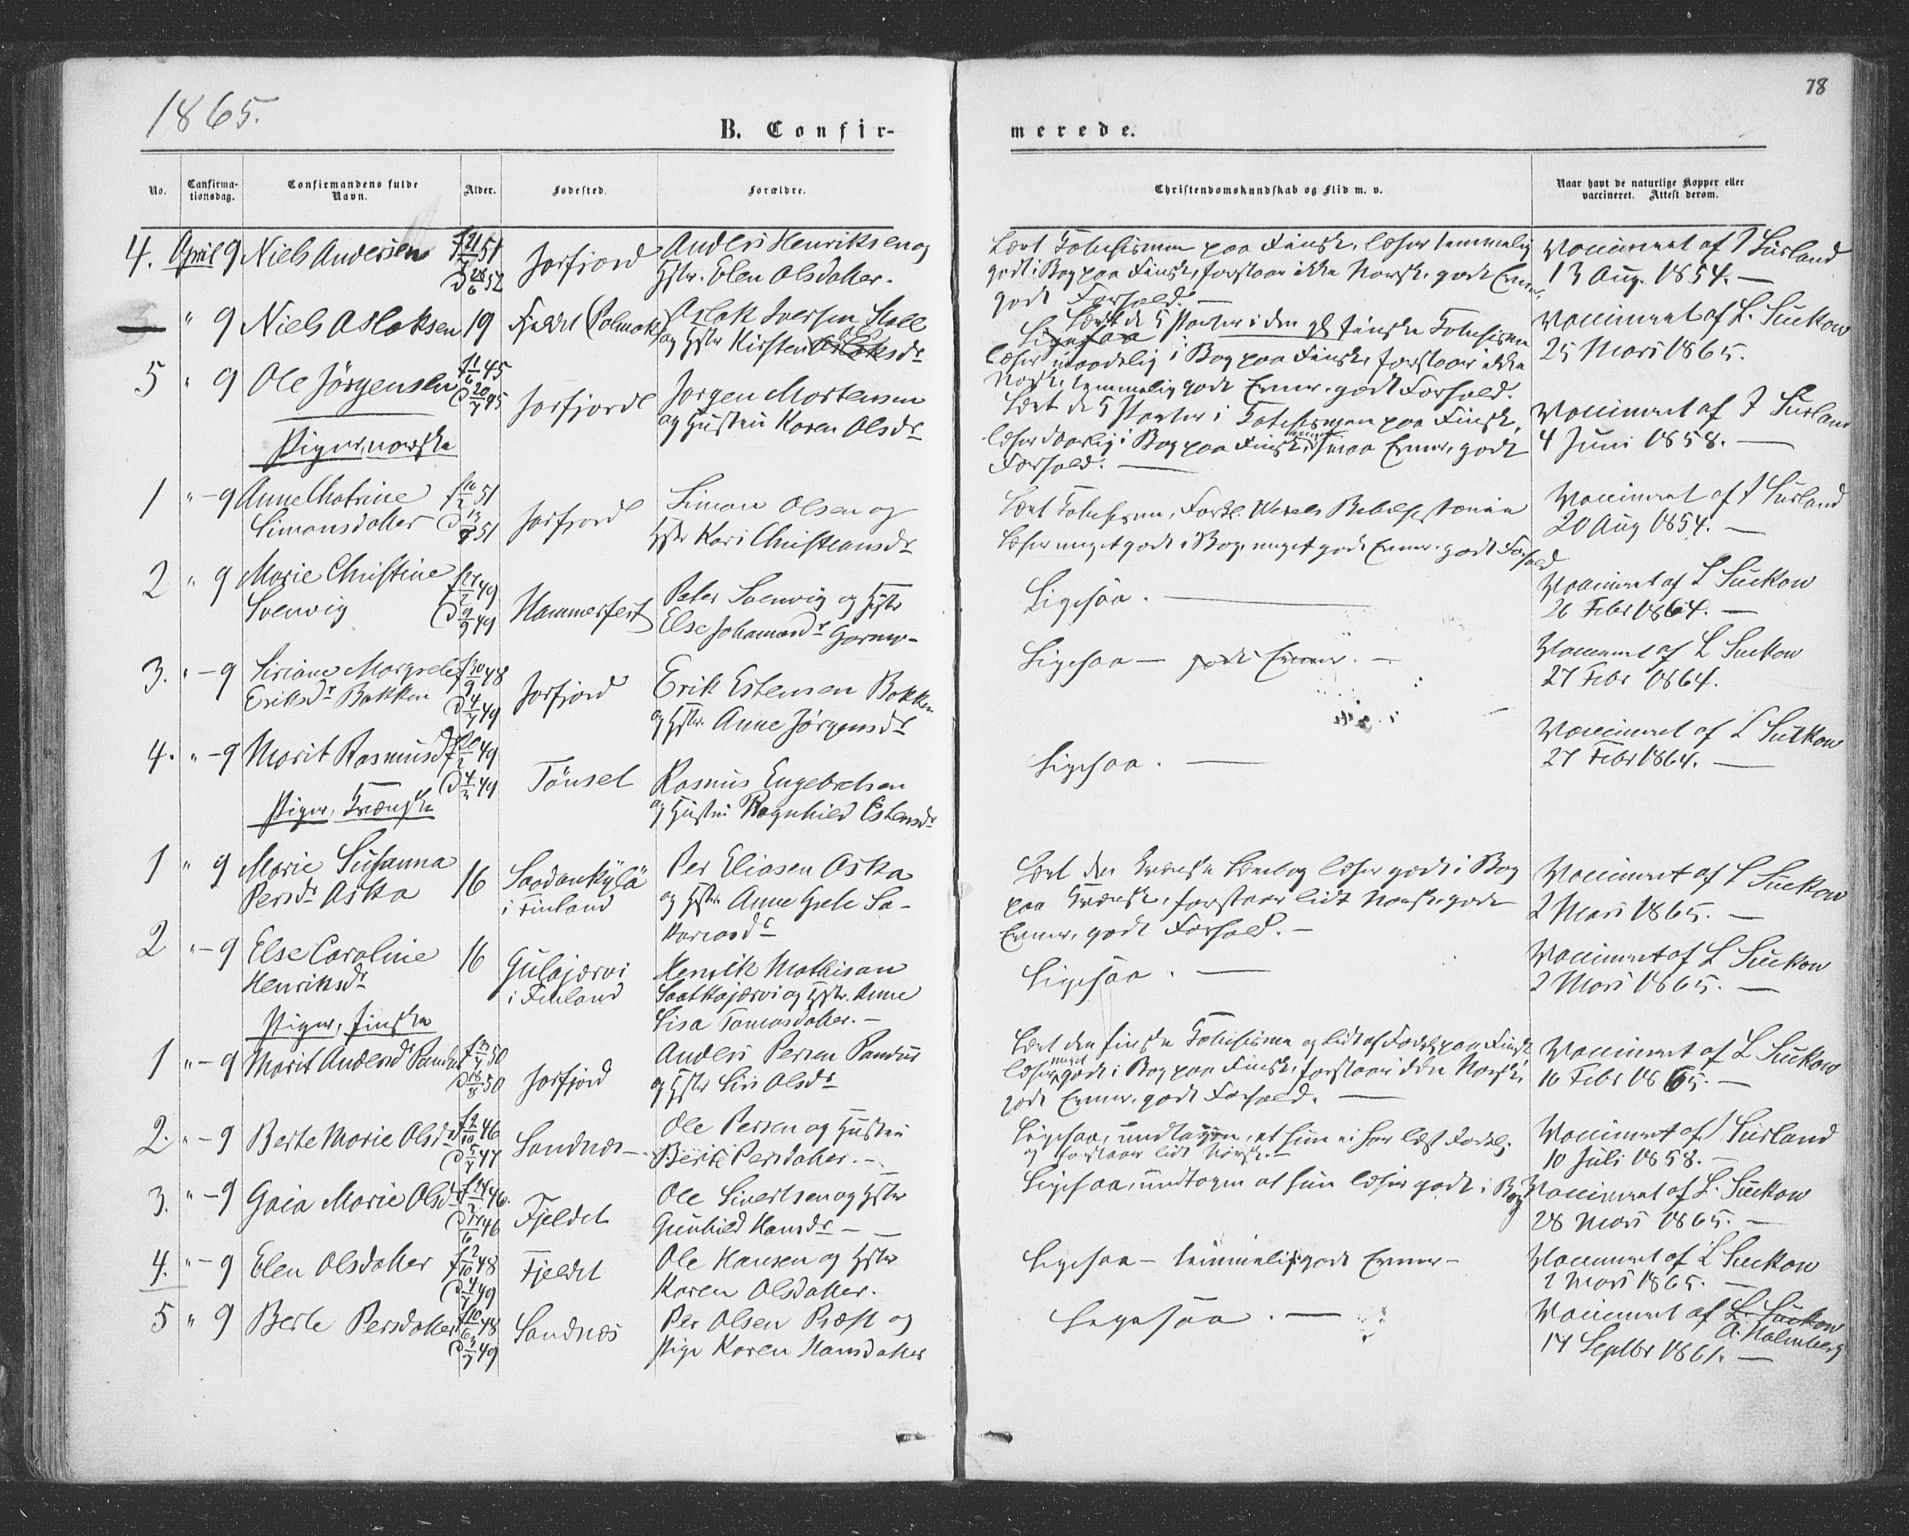 1865.
78
B. Confir-
merede.
No.
Confirma-
tionsdag.
Confirmandens fulde
Navn.
Alder.
Fødested.
Forældre.
Christendomskundskab og Flid m. v.
Naar havt de naturlige Kopper eller
vaccineret. Attest derom.
4. April 9 Niels Andersen f 51 Jarfjord Anders Henriksen og
Hstr. Elen Olsdatter.
Lært Katechismen paa Finsk, læser temmelig
godt i Bog paa Finsk, forstaar ikke Norsk, godt Emne,
godt Forhold. —
Vaccineret af J Sürland
13 Aug. 1854. —
" 9 Niels Aslaksen 19 Fjeldet Polmak Aslak Iversen
og Hstr Kirsten
Ligesaa Lært de 5 Parter i den gl finske Katechisme
læser maadelig i Bog paa Finsk, forstaar ikke
Norsk, temmelig godt Emne, godt Forhold.
Vaccineret af L. Suckow
25 Mars 1865.
5 " 9 Ole Jörgensen Jarfjord Jørgen Mortensen
og Hustru Karen Olsdr
Lært de 5 Parter i Katechismen paa Finsk,
læser daarlig i Bog paa Finsk, smaa Emne, godt
Forhold. —
Vaccineret af J Sürland
4 Juni 1858. —
Piger, norske
1 " – 9 Anne Chatrine
Simonsdatter 51 Jarfjord Simon Olsen og
Hstr Kari Christiansdr
Lært Katechismen, Forkl. Wexels Bibelhistorie
læser meget godt i Bog, meget godt Emne, godt Forhold
Vaccineret af J Sürland
20 Aug 1854. —
2 " 9 Marie Christine
Solnvig 49 Hammerfest Peter Solnvig og Hstr
Else Johannesdr
Ligesaa. —
Vaccineret af L Suckow
26 Febr 1864. —
3. " – 9 Siriane Margrete
Eriksdr Bakken 48 Jarfjord Erik Estensen Bakken
og Hstr. Anne Jørgensdr
Ligesaa — godt Emne. —
Vaccineret af L Suckow
27 Febr 1864.
4. " – 9 Marit Rasmusdr 49 Tönset Rasmus Engebretsen
og Hustru Ragnhild Estensdr
Ligesaa. —
Vaccineret af L Suckow
27 Febr 1864. —
Piger, Kvænske
1 " 9 Marie Susanna
Persdr Aska 16 Soodankylä
i Finland Per Eliasen Aska
og Hstr. Anne Grete
Lært den Kvænske læser godt i Bog
paa Kvænsk, forstaar lidt Norsk, godt
Emne, godt Forhold. —
Vaccineret af L Suckow
2 Mars 1865. —
2 " – 9 Else Caroline
Henriksdr 16 Gulajærvi
i Finland Henrik Mathisan
Saatkajærvi og Hstr. Anne
Lisa Tomasdatter. —
Ligesaa. —
Vaccineret af L Suckow
2 Mars 1865. —
Piger, finske
1 " – 9 Marit Andersdr Pandus 50 Jarfjord Anders Persen Pandus
og Hstr Siri Olsdr
Lært den finske Katechisme og lidt af Forkl paa Finsk
læser meget godt i Bog paa Finsk, forstaar ikke Norsk,
godt Emne, godt Forhold. —
Vaccineret af L Suckow
16 Febr 1865. —
2. " – 9 Berte Marie Olsdr 46 Sandnæs Ole Persen og Hustru
Berte Persdatter. —
Ligesaa, undtagen, at hun ei har læst Forkl.
og forstaar lidt Norsk. —
Vaccineret af J Sürland
10 Juli 1858. —
3. " – 9 Gaia Marie Olsdr 46 Fjeldet Ole Sivertsen og Hstr
Gunhild Hansdr —
Ligesaa, undtagen at hun læser godt i Bog
Vaccineret af L. Suckow
28 Mars 1865. —
4. " – 9 Elen Olsdatter 48 Fjeldet Ole Hansen og Hstr
Karen Olsdatter.
Ligesaa — temmelig godt Emne —
Vaccineret af L Suckow
2 Mars 1865. —
5 " 9 Berte Persdatter 48 Sandnæs Per Olsen Præst og
Pige Karen Hansdatter
Ligesaa. —
Vaccineret af L. Suckow
A. Holmberg
14 Septbr 1861. —